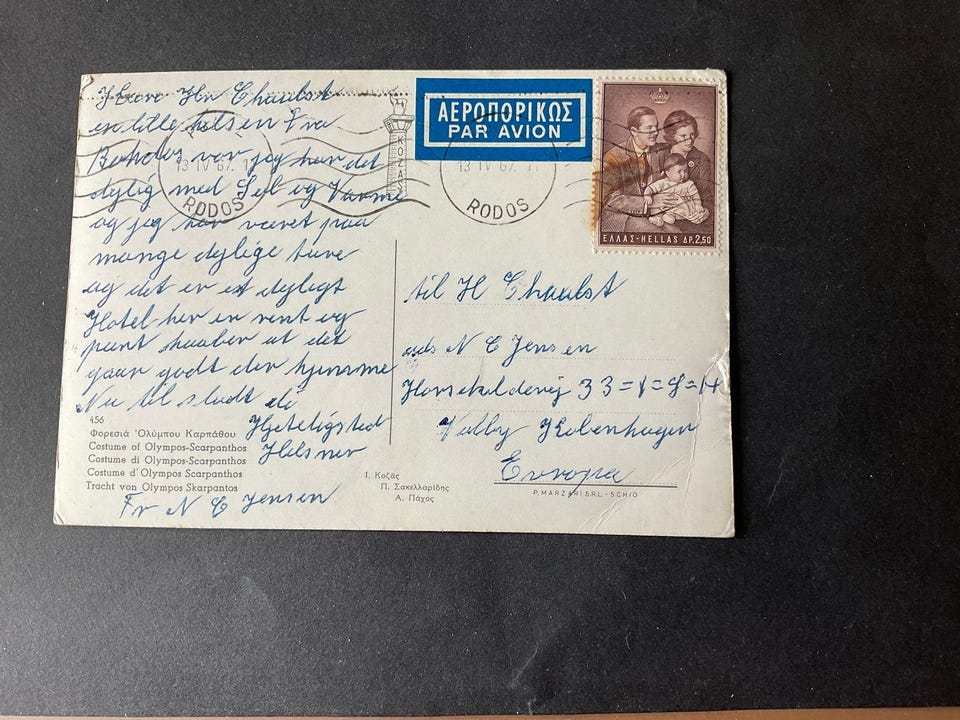 Hr Chaabst
en lille hilsen Fra
Rohdos vor jeg har det
dejlig med Sol og Varme
og jeg har været paa
mange dejlige ture
og det er et dejligt
Hotel her er rent og
pænt haaber at det
gaar godt der hjemme
Nu til slut de
Hjerteligsted
Hilsner
Fr N C Jensen
456
Φορεσιά Ὀλύμπου Καρπάθου
Costume of Olympos-Scarpanthos
Costume di Olympos-Scarpanthos
Costume d' Olympos Scarpanthos
Tracht von Olympos Skarpantos
Ι. Κοζᾶς
Π. Σακελλαρίδης
Α. Πάχος
ΑΕΡΟΠΟΡΙΚΩΣ
PAR AVION
13 IV 67
RODOS
ΚΟΖΑΣ
13 IV 67
RODOS
ΕΛΛΑΣ-HELLAS ΔΡ.2,50
til H Chaabst
N C Jensen
33=1=
Valby Kobenhagen
P. MARZARI S.R.L.-SCHIO